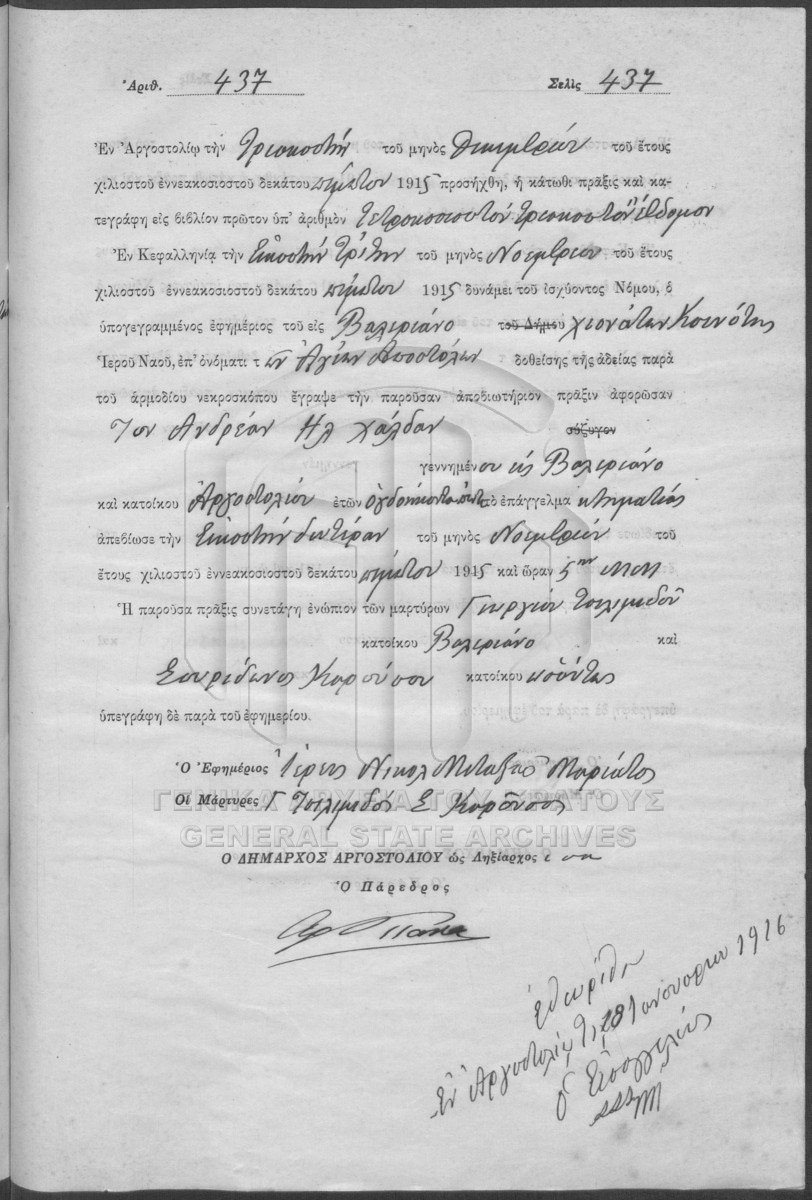 Ἀριθ. 437 Σελὶς 437
Ἐν Ἀργοστολίῳ τὴν Τριακοστὴν τοῦ μηνὸς Δεκεμβρίου τοῦ ἔτους
χιλιοστοῦ ἐννεακοσιοστοῦ δεκάτου πέμπτου 1915 προσήχθη, ἡ κάτωθι πρᾶξις καὶ κα-
τεγράφη εἰς βιβλίον πρῶτον ὑπ' ἀριθμὸν Τετρακοσιοστὸν Τριακοστὸν ἕβδομον
Ἐν Κεφαλληνίᾳ τὴν Εἰκοστὴν Τρίτην τοῦ μηνὸς Νοεμβρίου τοῦ ἔτους
χιλιοστοῦ ἐννεακοσιοστοῦ δεκάτου πέμπτου 1915 δυνάμει τοῦ ἰσχύοντος Νόμου, ὁ
ὑπογεγραμμένος ἐφημέριος τοῦ εἰς Βαλεριάνο τοῦ Δήμου χιονάτων Κοινότης
Ἱεροῦ Ναοῦ, ἐπ' ὀνόματι τ ων Ἁγίων Ἀποστόλων δοθείσης τῆς ἀδείας παρὰ
τοῦ ἁρμοδίου νεκροσκόπου ἔγραψε τὴν παροῦσαν ἀποβιωτήριον πρᾶξιν ἀφορῶσαν
Τον Ἀνδρέαν Ηλ χάλδαν σύζυγον
γεννημένου εἰς Βαλεριάνο
καὶ κατοίκου Ἀργοστολίου ἐτῶν τὸ ἐπάγγελμα κτηματίας
ἀπεβίωσε τὴν Εἰκοστὴν δευτέραν τοῦ μηνὸς Νοεμβρίου τοῦ
ἔτους χιλιοστοῦ ἐννεακοσιοστοῦ δεκάτου πέμπτου 1915 καὶ ὥραν 5ην ΜΜ
Ἡ παροῦσα πρᾶξις συνετάγη ἐνώπιον τῶν μαρτύρων Γεωργίου Τσελιμιδοῦ
κατοίκου Βαλεριάνο καὶ
Σπυρίδωνος Καρούσου κατοίκου
ὑπεγράφη δὲ παρὰ τοῦ ἐφημερίου.
Ὁ Ἐφημέριος Ἱερεὺς Νικολ Μεταξᾶς Μαριάτος
Οἱ Μάρτυρες Γ Τσελιμιδος Σ Καροῦσος
ΓΕΝΙΚΑ ΑΡΧΕΙΑ ΤΟΥ ΚΡΑΤΟΥΣ
GENERAL STATE ARCHIVES
Ο ΔΗΜΑΡΧΟΣ ΑΡΓΟΣΤΟΛΙΟΥ ὡς Ληξίαρχος
Ὁ Πάρεδρος
Ἐθεωρήθη
Ἐν Ἀργοστολίῳ τῇ 18 Ἰανουαρίου 1916
Ὁ Εἰσαγγελεὺς